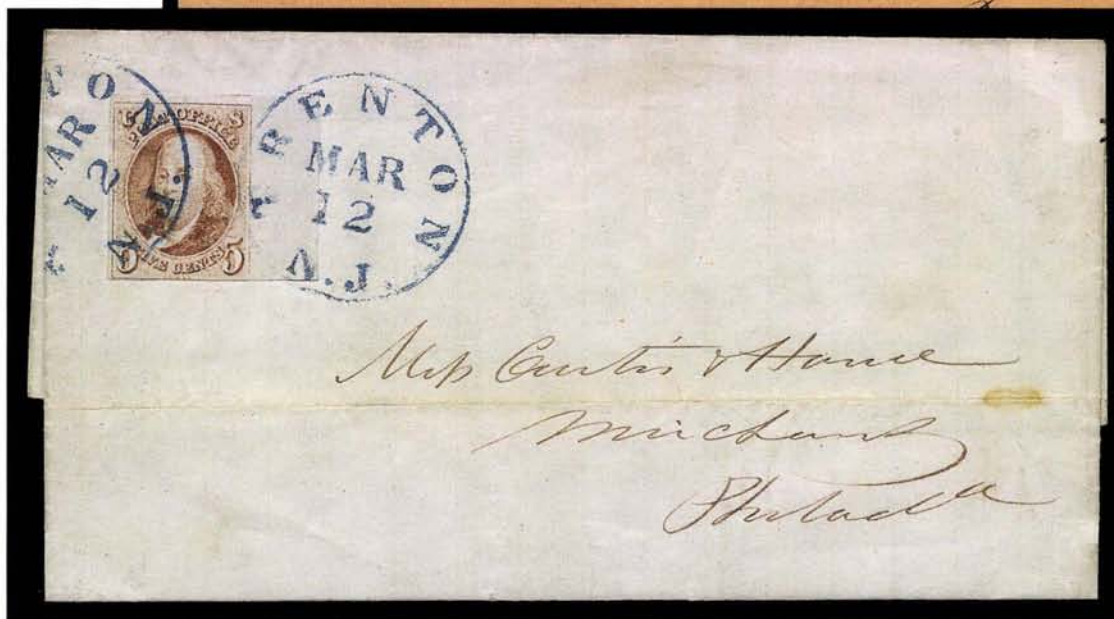 TON
MAR
12
N.J.
U S
POST OFFICE
FIVE CENTS
5 5
TRENTON
MAR
12
N.J.
Mess Curtis & Hance
Merchants
Philad^a